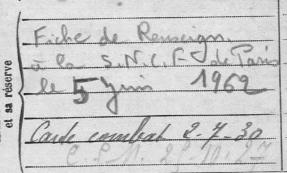 Fiche de Renseign.
à la S.N.C.F. de Paris
le 5 Juin 1962
et sa réserve
Carte combat 2-7-30